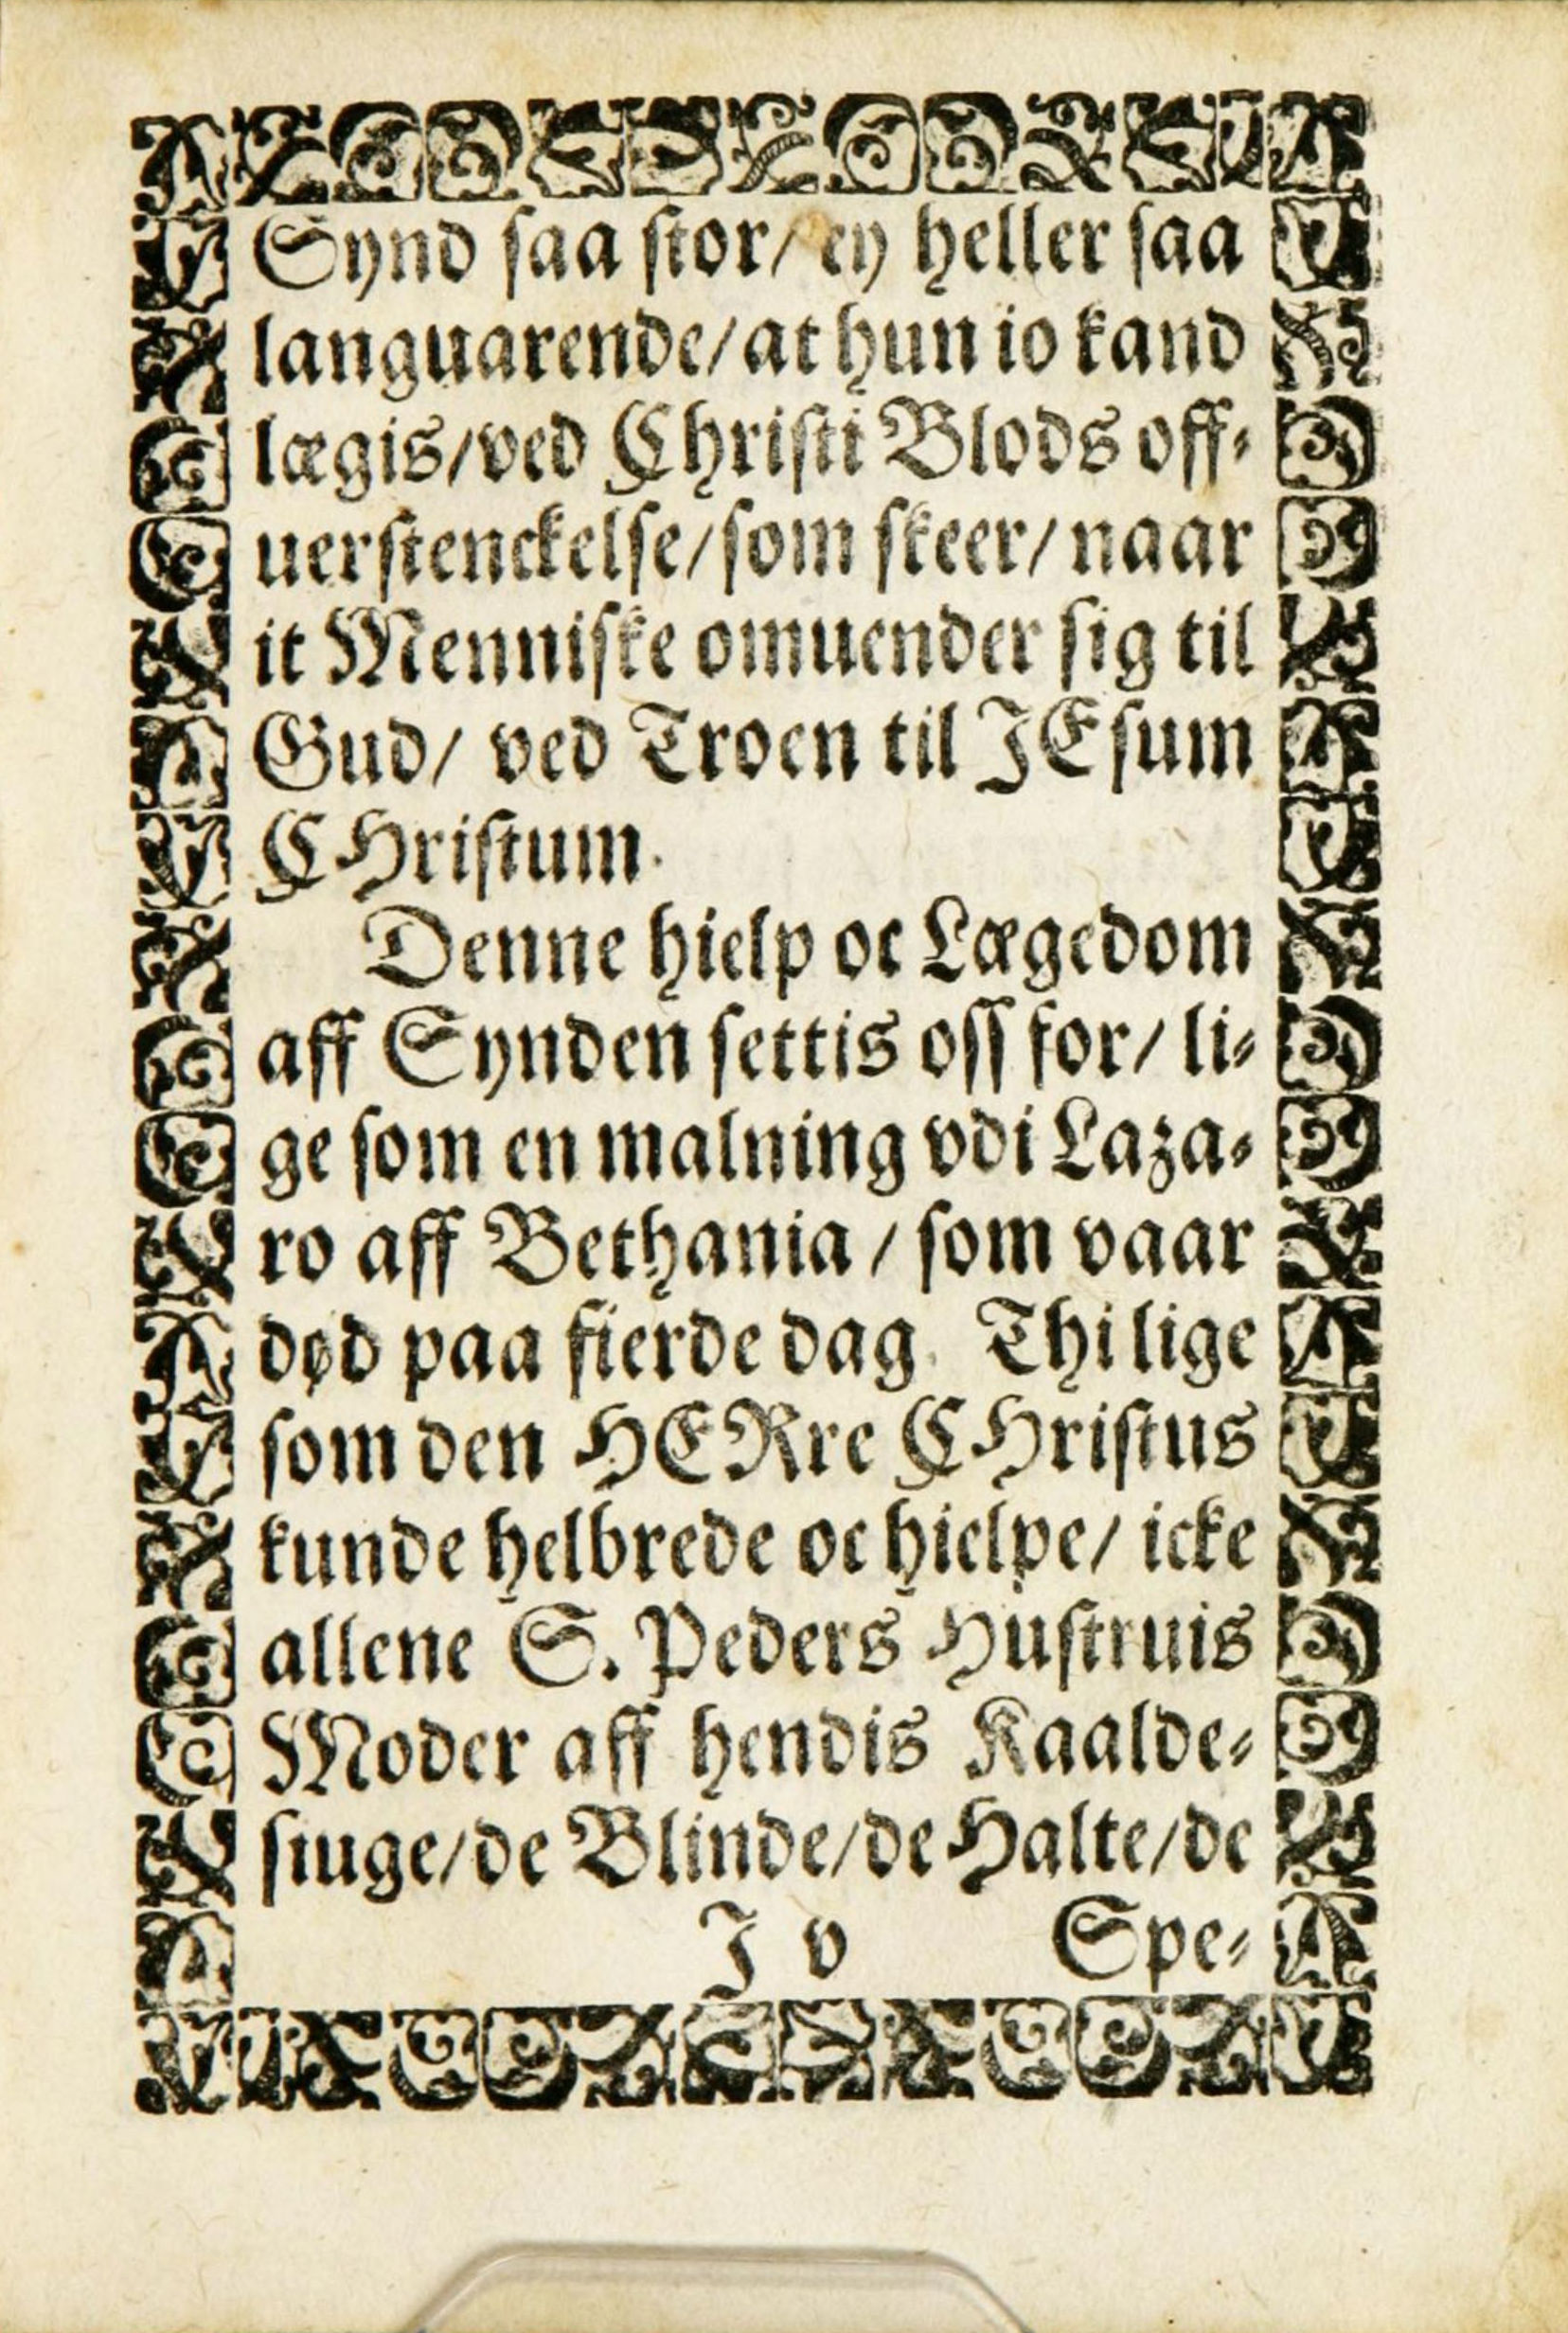 Synd saa stor/ ey heller saa
languarende/ at hun io kand
lægis/ ved Christi Blods off-
uerstenckelse/ som skeer/ naar
it Menniske omuender sig til
Gud/ ved Troen til JEsum
CHristum.
Denne hielp oc Lægedom
aff Synden settis oss for/ li-
ge som en malning vdi Laza-
ro aff Bethania / som vaar
død paa fierde dag. Thi lige
som den HERre CHristus
kunde helbrede oc hielpe/ icke
allene S. Peders Hustruis
Moder aff hendis Kaalde-
siuge/ de Blinde/ de Halte/ de
J v Spe-